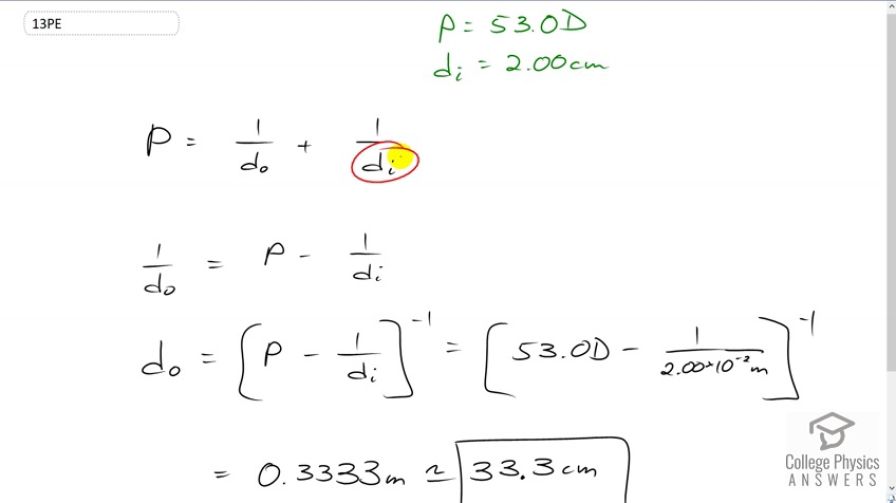 13PE
P = 53.0D
di = 2.00cm
P = 1/do + 1/di
1/do = P - 1/di
do = [P - 1/di]^-1 = [53.0D - 1/2.00×10^-2 m]^-1
= 0.3333m ≃ 33.3cm
College Physics
ANSWERS